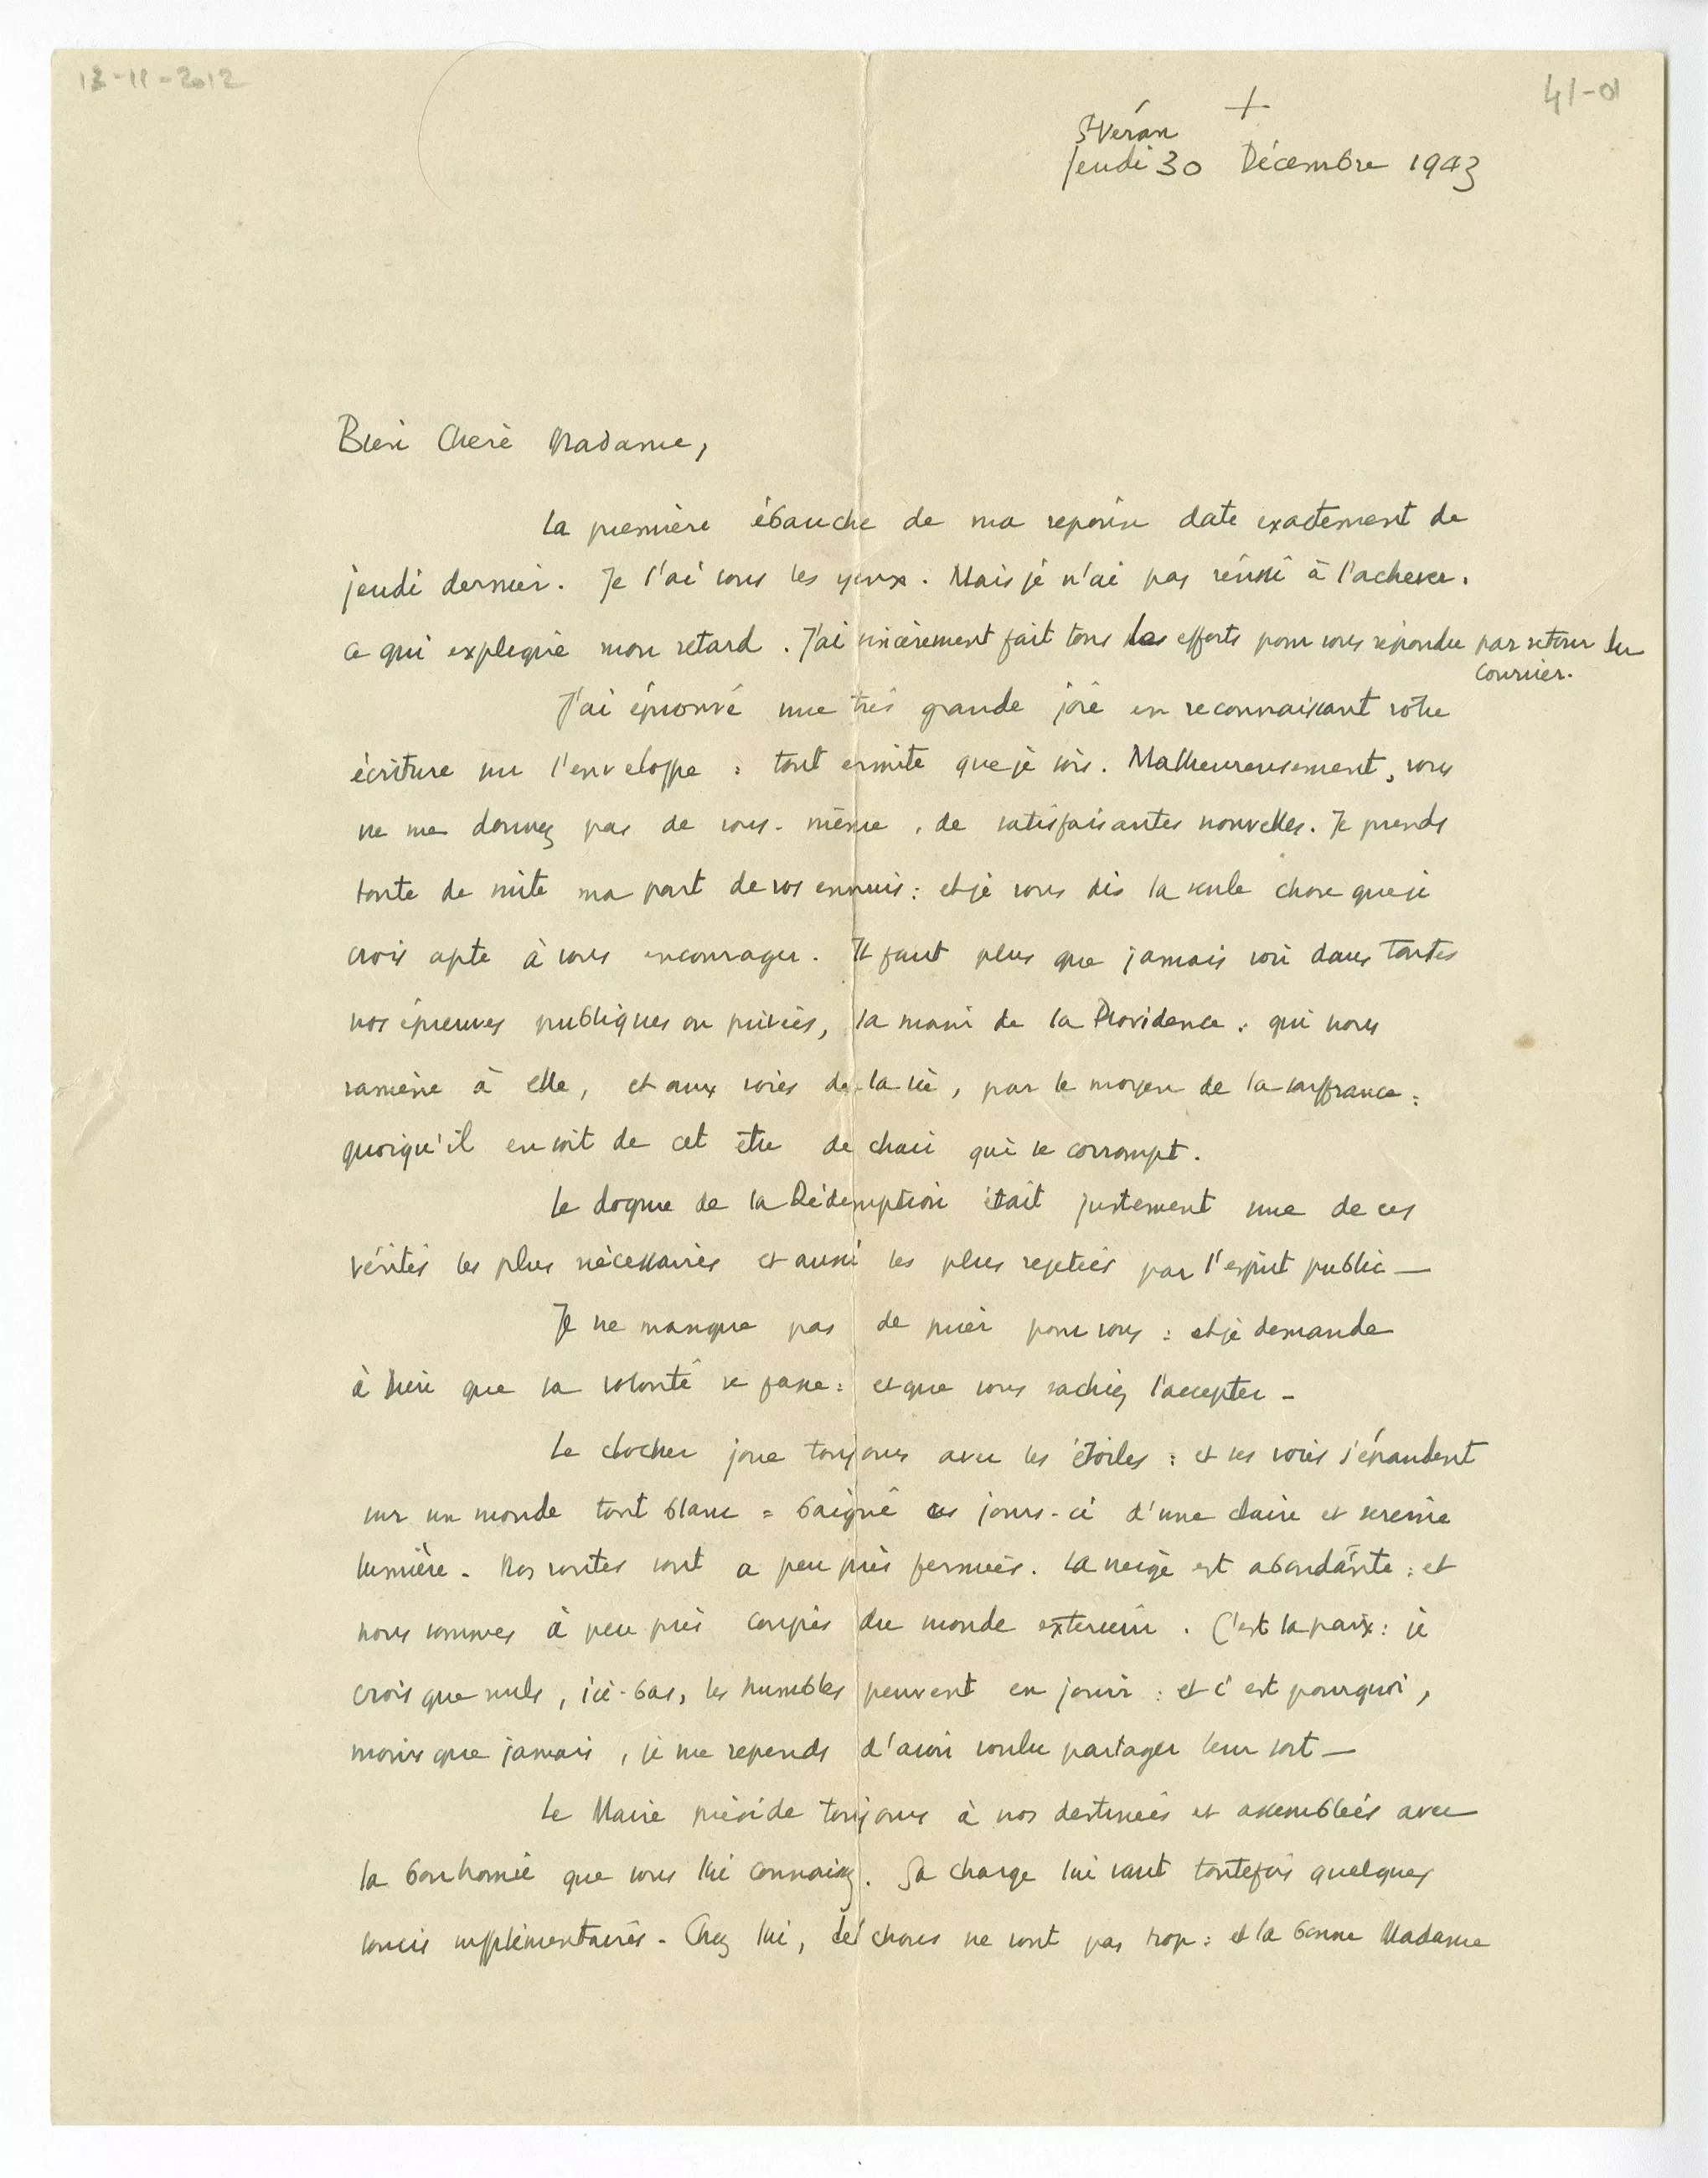 13-11-2012
41-01
+
St Véran
Jeudi 30 Décembre 1943
Bien Chère Madame,
La première ébauche de ma réponse date exactement de
jeudi dernier. Je l'ai sous les yeux. Mais je n'ai pas réussi à l'achever.
Ce qui explique mon retard. J'ai sincèrement fait tous les efforts pour vous répondre par retour du
courrier.
J'ai éprouvé une très grande joie en reconnaissant votre
écriture sur l'enveloppe : tout ermite que je sois. Malheureusement, vous
ne me donnez pas de vous-même, de satisfaisantes nouvelles. Je prends
toute de suite ma part de vos ennuis : et je vous dis la seule chose que je
crois apte à vous encourager. Il faut plus que jamais voir dans toutes
nos épreuves publiques ou privées, la main de la Providence : qui nous
ramène à elle, et aux voies de la vie, par le moyen de la souffrance :
quoiqu'il en soit de cet être de chair qui se corrompt.
Le dogme de la Rédemption était justement une de ces
vérités les plus nécessaires et aussi les plus rejetées par l'esprit public —
Je ne manque pas de prier pour vous : et je demande
à Dieu que sa volonté se fasse : et que vous sachiez l'accepter -
Le clocher joue toujours avec les étoiles : et ses voix s'épandent
sur un monde tout blanc : baigné ces jours-ci d'une claire et sereine
lumière - Nos routes sont a peu près fermées. La neige est abondante : et
nous sommes à peu près coupés du monde extérieur. C'est la paix : je
crois que seuls, ici-bas, les humbles peuvent en jouir : et c'est pourquoi,
moins que jamais, je me repends d'avoir voulu partager leur sort —
Le Maire préside toujours à nos destinées et assemblées avec
la bonhomie que vous lui connaissez. Sa charge lui vaut toutefois quelques
soucis supplémentaires - Chez lui, les choses ne vont pas trop : et la bonne Madame